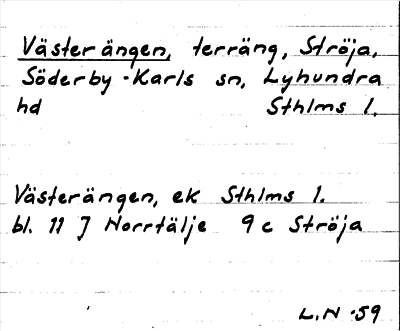 Västerängen, terräng, Ströja,
Söderby-Karls sn, Lyhundra
hd Sthlms l.
Västerängen, ek Sthlms l.
bl. 11 J Norrtälje 9c Ströja
L.N -59